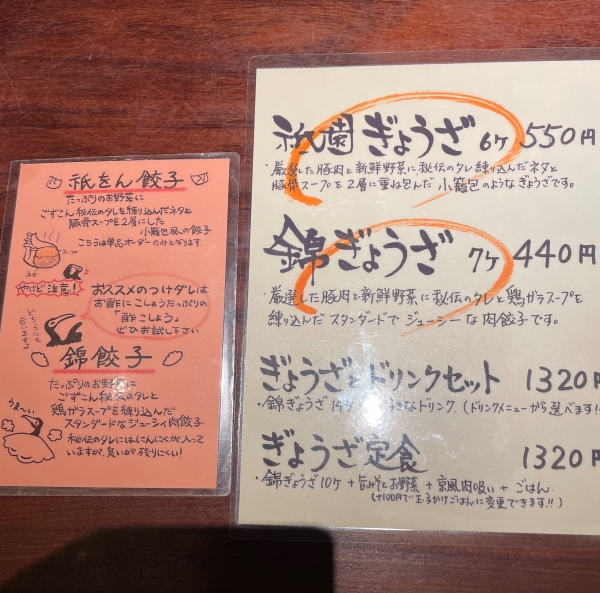 祇をん餃子
たっぷりのお野菜に
ごずこん秘伝のタレを練り込んだネタと
豚骨スープを2層にした
小籠包風の餃子
こちらは単品オーダーのみとなります
スープ
ネタ
やけど注意!
おススメのつけダレは
お酢にこしょうたっぷりの
「酢こしょう」
ぜひお試し下さい
どちらも
錦餃子
たっぷりのお野菜に
ごずこん秘伝のタレと
鶏ガラスープを練り込んだ
スタンダードなジューシィ肉餃子
うま〜い
秘伝のタレにはにんにくが入って
いますが、臭いが残りにくい!
祇園ぎょうざ 6ケ 550円
・厳選した豚肉と新鮮野菜に秘伝のタレ練り込んだネタと
豚骨スープを2層に重ね包んだ小籠包のようなぎょうざです。
錦ぎょうざ 7ケ 440円
・厳選した豚肉と新鮮野菜に秘伝のタレと鶏ガラスープを
練り込んだスタンダードでジューシーな肉餃子です。
ぎょうざとドリンクセット 1320円
・錦ぎょうざ14ケ きなドリンク (ドリンクメニューから選べます!!
ぎょうざ定食 1320円
・錦ぎょうざ10ケ + 旨みそとお野菜 + 京風肉吸い + ごはん
(+100円で玉子かけごはんに変更できます!!)